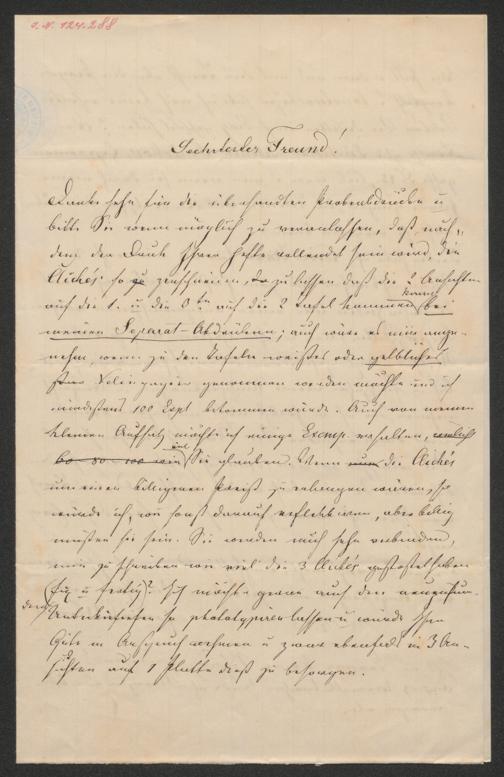 I. N. 124.288
Geehrtester Freund!
Danke sehr für die übersandten Probeabdrücke u
bitte Sie wenn möglich zu veranlassen, daß nach-
dem der Druck Ihrer Hefte vollendet sein wird, die
Clichés so zu zerschneiden, zu lassen daß die 2 Ansichten
auf die 1. u die 3te auf die 2 Tafel kommen bei
meinen Separat-Abdrücken; auch wäre es mir ange-
nehm, wenn zu den Tafeln weißes oder gelbliches
Velinpapier genommen werden möchte und ich
mindestens 100 Sept bekommen würde. Auch von meinem
kleinen Aufsatz möchte ich einige Exemp. erhalten,
60 80 100 wie Sie glauben. Wenn die Clichés
um einen billigeren Preiß zu erlangen wären, so
würde ich, wie sonst darauf reflektiren, aber billig
müßten sie sein. Sie werden mich sehr verbinden,
mir zu schreiben wie viel die 3 Clichés gekostet haben
fix u fertig? Ich möchte gerne auch den
Unterkiefer so phototypiren lassen u würde Ihre
Güte in Anspruch nehmen u zwar ebenfalls in 3 An-
sichten auf 1 Platte dieß zu besorgen.